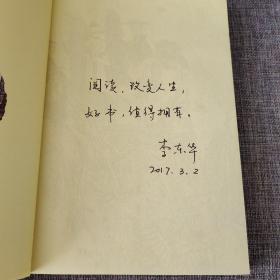 阅读，改变人生，
好书，值得拥有。
李东华
2017.3.2